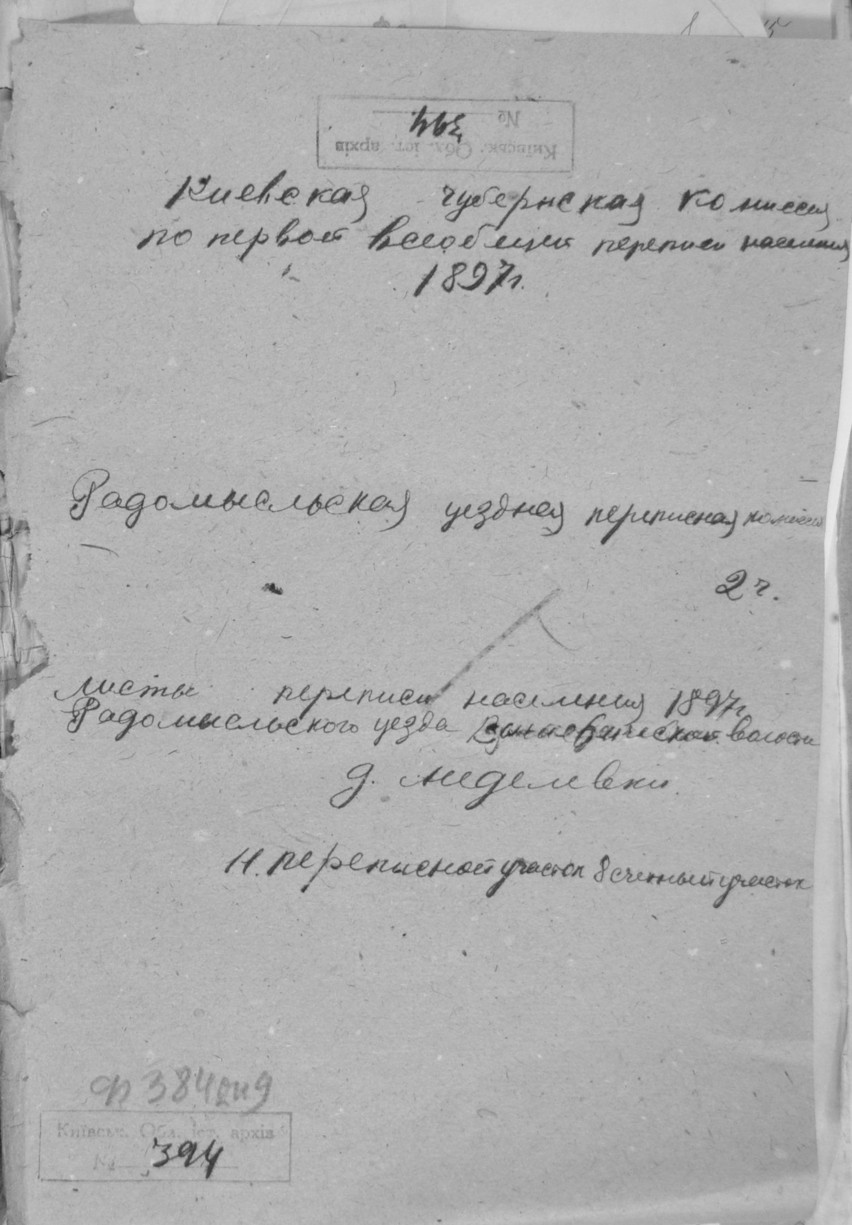 Київськ. Обл. іст. архів
№ 394
Киевская губернская комиссия
по первой всеобщей переписи населения
1897г.
Радомысльская уездная переписная комиссия
2 ч.
Листы переписи населения 1897г
Радомысльского уезда волости
д. Неделевки
переписной участок 8 счетный участок
Ф 384 оп 9
Київськ. Обл. іст. архів
№ 394